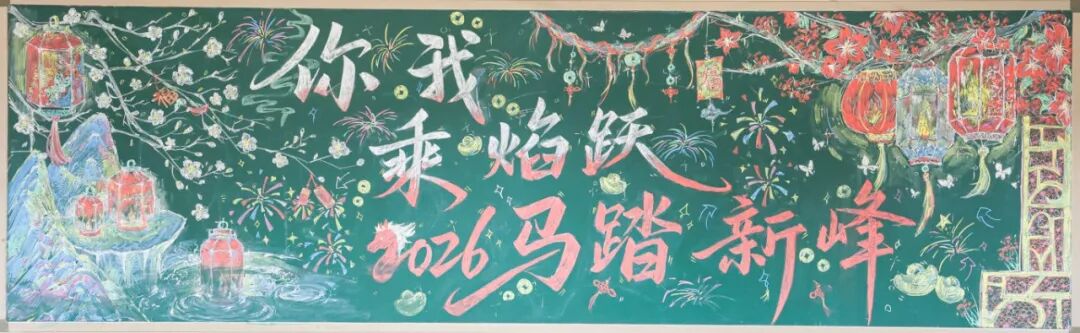 你我
乘焰跃
2026马踏新峰